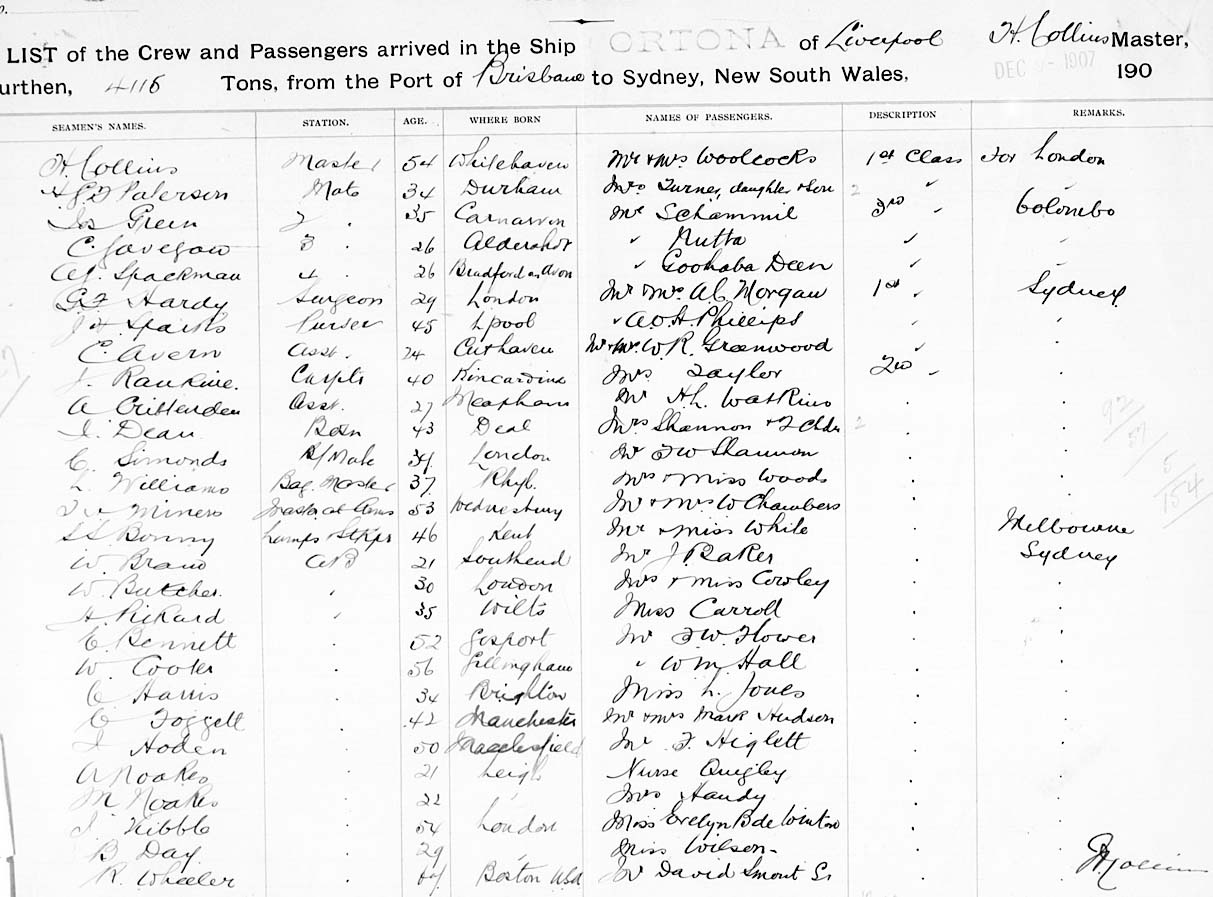 LIST of the Crew and Passengers arrived in the Ship ORTONA of Liverpool H. Collins Master,
urthen, 4116 Tons, from the Port of Brisbane to Sydney, New South Wales, DEC 1907 190
SEAMEN'S NAMES. STATION. AGE. WHERE BORN NAMES OF PASSENGERS. DESCRIPTION REMARKS.
H. Collins Master 54 Whitehaven Mr & Mrs Woolcocks 1st Class For London
Paterson Mate 34 Durham Mrs Turner, daughter & Son " "
Jas Green 2 " 35 Carnarvon Mr Schammil 3rd " Colombo
C. 3 " 26 Aldershot " Mutta " "
Spackman 4 " 26 Bradford on Avon " Goohaba Deen "
G F Hardy Surgeon 29 London Mr & Mrs A C Morgan 1st " Sydney
Sparks Purser 45 Lpool " A. O. H. Phillips " "
C. Avern Asst. 24 Cuxhaven Mr & Mrs W. R. Greenwood " "
J. Rankine. Carptr 40 Kincardine Mrs Taylor 2nd " "
A Crittenden Asst. 27 Meapham Mr H. L. Watkins " "
J. Dean Bosn 43 Deal Mrs Shannon & 2 Chdn " "
C. Simonds B/Mate 34 London Mr F W Shannon " "
L. Williams Bag. Master 37 Rhyl. Mrs & Miss Woods " "
Miners Master at Arms 53 Wednesbury Mr & Mrs W Chambers " "
Bonny Lamps & Stkpr 46 Kent Mr & Miss White " Melbourne
W. Brand AB 21 Southend Mr J. Baker " Sydney
W. Butcher. " 30 London Mrs & Miss Cowley " "
H. Rickard " 35 Wilts Miss Carroll " "
C. Bennett " 52 Gosport Mr F W. Flower " "
W. Cooter " 56 Gillingham " Wm Hall " "
C Harris " 34 Brighton Miss L. Jones " "
C Foggett " 42 Manchester Mr & Mrs Mark Hudson " "
J Hoden " 50 Macclesfield Mr F. Higlett " "
A Noakes " 21 Leigh Nurse Quigley " "
M Noakes " 22 " Mrs Handy " "
J. Kibble " 54 London Miss Evelyn B de Winton " "
B Day " 29 " Miss Wilson " "
R. Wheeler " Boston USA Mr David Smout Sr " "
H Collins